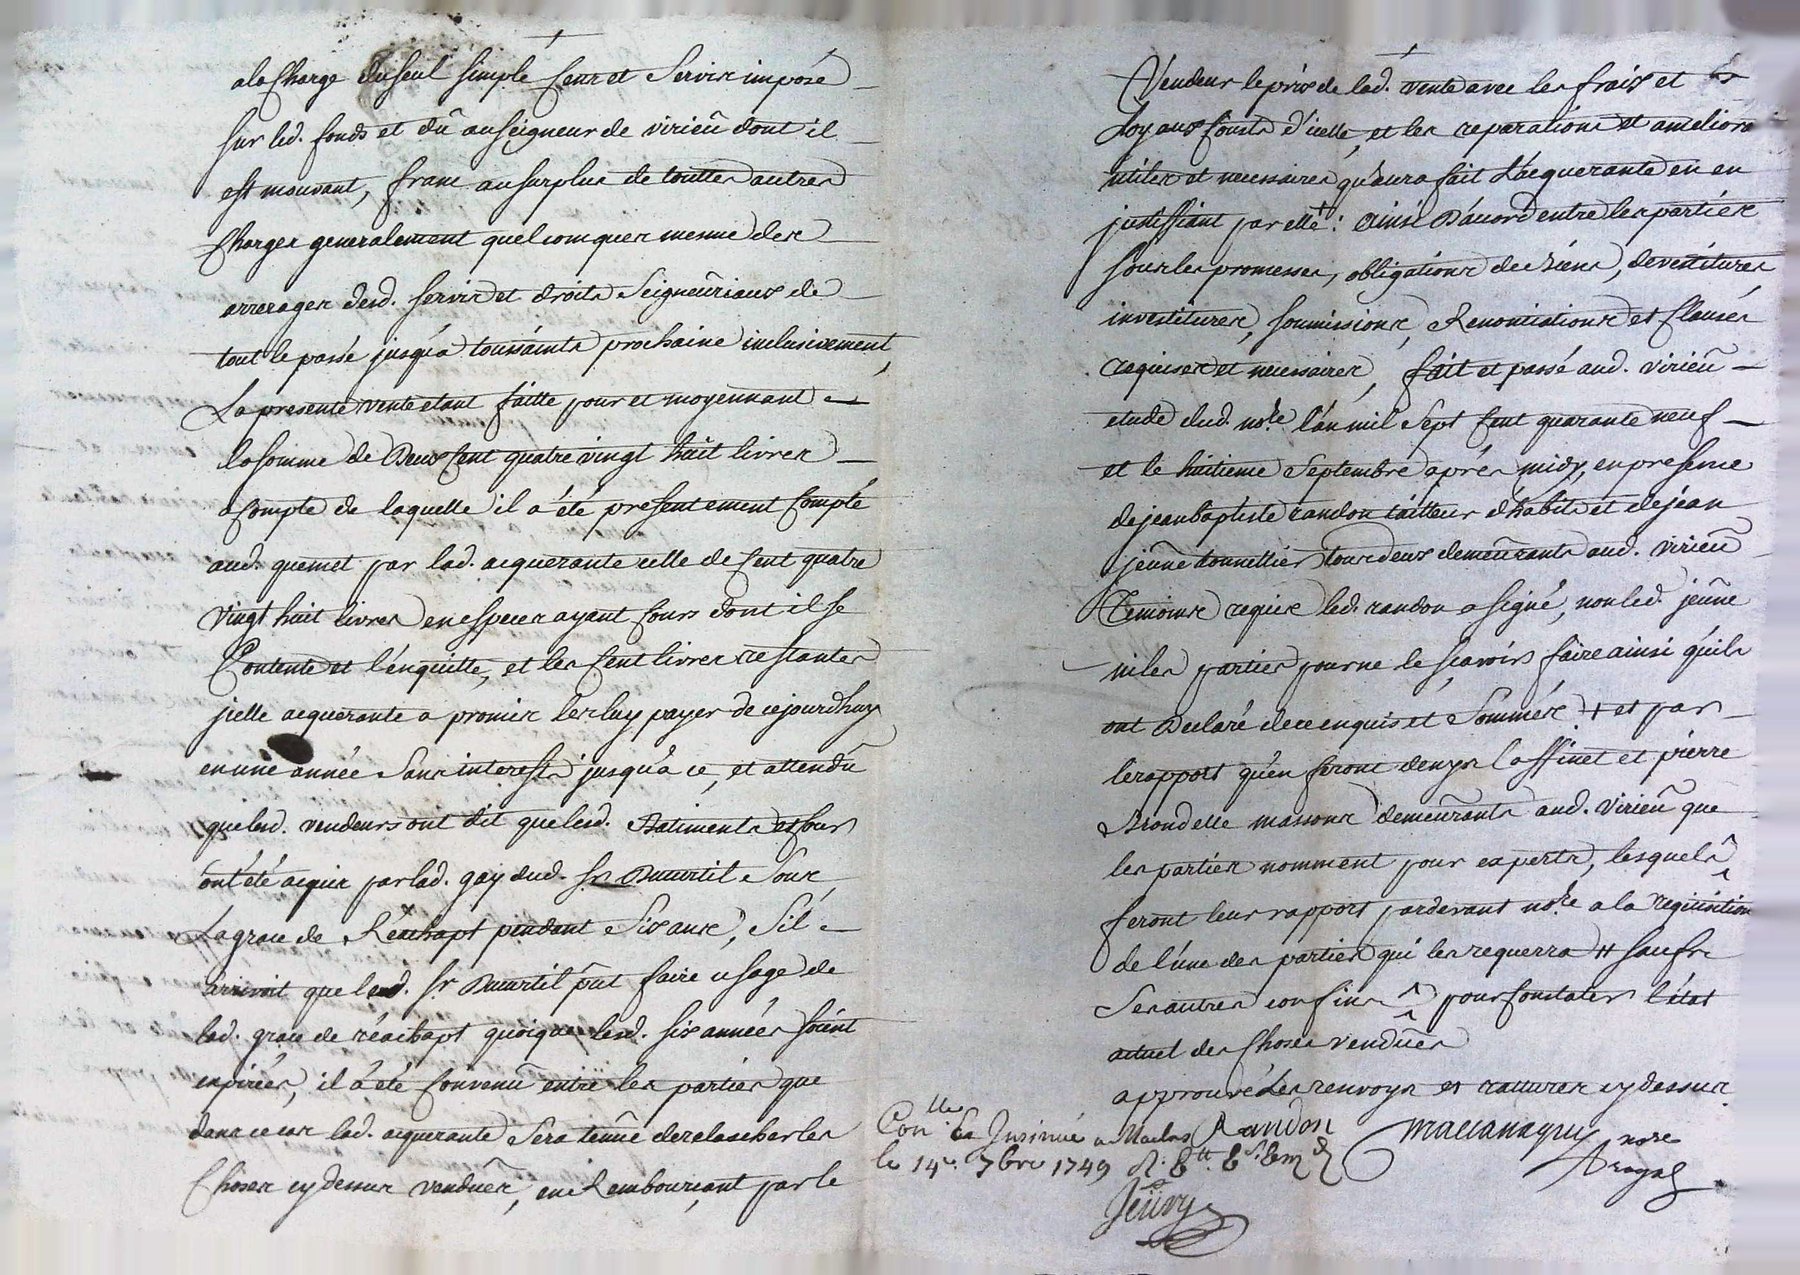 ala Charge du seul simple Cens et Servis imposé
sur led. fonds et dû au seigneur de virieû dont il
est mouvant, franc au surplus de touttes autres
Charges generalement quelconques mesme des
arrerages desd. servis et droits Seigneûriaux de
tout le passé jusqu'a toussaints prochaine inclusivement,
La presente vente etant faitte pour et moyennant
la somme de Deux Cent quatre vingt huit livres
a Compte de laquelle il a été presentement Compté
aud. quemet par lad. acquerante celle de Cent quatre
Vingt huit livres en especes ayant Cours dont il se
Contente et l'enquitte, et les Cent livres restantes
jcelle acquerante a promis les luy payer de cejourdhuy
en une année Sans interests jusqu'a ce, et attendû
que lesd. vendeurs ont dit que lesd. Batiments et Cour
ont été acquis par lad. gay dud. Sr Duurtil Sous
La grace de Réachapt pendant Six ans, Sil
arrivoit que led. Sr Duurtil put faire usage de
lad. grace de réachapt quoique lesd. six années soient
expirées, il a été Convenû entre les parties que
dans ce cas lad. acquerante Sera tenûe de relascher les
Choses cy dessus vendûes, en Remboursant par le
Vendeur le prix de lad. vente avec les frais et
Loyaux Cousts d'icelle, et les reparations et ameliora
utiles et necessaires qu'aura fait L'acquerante en en
justiffiant par elle + : Ainsi D'acord entre les parties
sous les promesses, obligations de biens, devestitures,
investitures, soumissions, Renontiations et Clauses
requises et necessaires, fait et passé aud. virieû
etude dud. nore l'an mil Sept Cent quarante neuf
et le huitieme Septembre aprés midy, en presence
de jean baptiste randon tailleur d'habits et de jean
jeûne tonnellier tous deux demeûrants aud. virieû
Temoins requis led. randon a signé, non led. jeûne
ni les parties pour ne le scavoir faire ainsi qu'ils
ont Declaré de ce enquis et Sommés. + et par
le rapport qu'en feront denys Coffinet et pierre
Brondelle massons demeûrants aud. virieû que
les parties nomment pour experts, lesquels
feront leur rapport pardevant nore a la requisition
de l'une des parties qui les requerra # sauf
Ses autres confins pour Constater l'état
actuel des Choses vendûes
approuvé Les renvoys et ratures cy dessus
Conllé Et Insinué a Randon
le 14e. 7bre 1749
nore